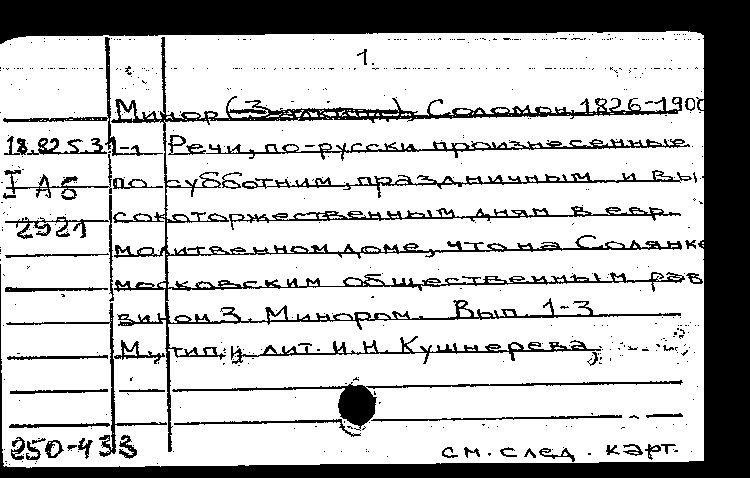 1.
Минор (Залкинд), Соломон, 1826-1900
18.82.5.31-1 Речи, по-русски произнесенные
I А5 по субботним, праздничным и вы-
2921 сокоторжественным дням в евр.
молитвенном доме, что на Солянке
московским общественным рав
вином З. Минором. Вып. 1-3
М., тип. и лит. И.Н. Кушнерева,
250-433 см. след. карт.